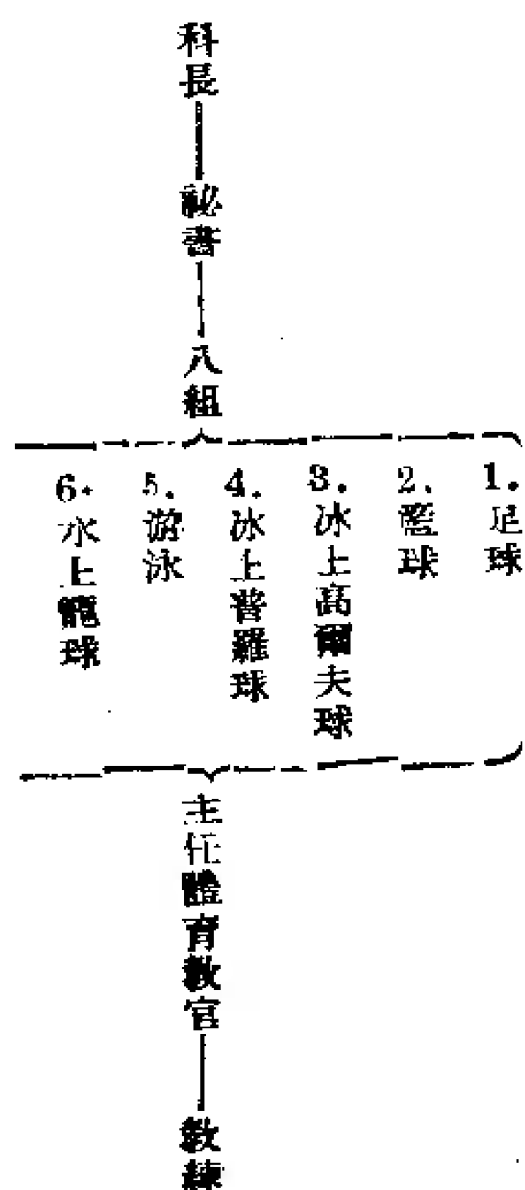 科長——祕書——八組
1.足球
2.籃球
3.冰上高爾夫球
4.冰上普羅球
5.游泳
6.水上籠球
主任體育教官——教練